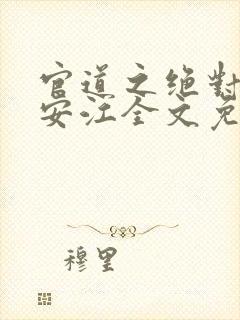 官道之绝对
安江全文免
穆里